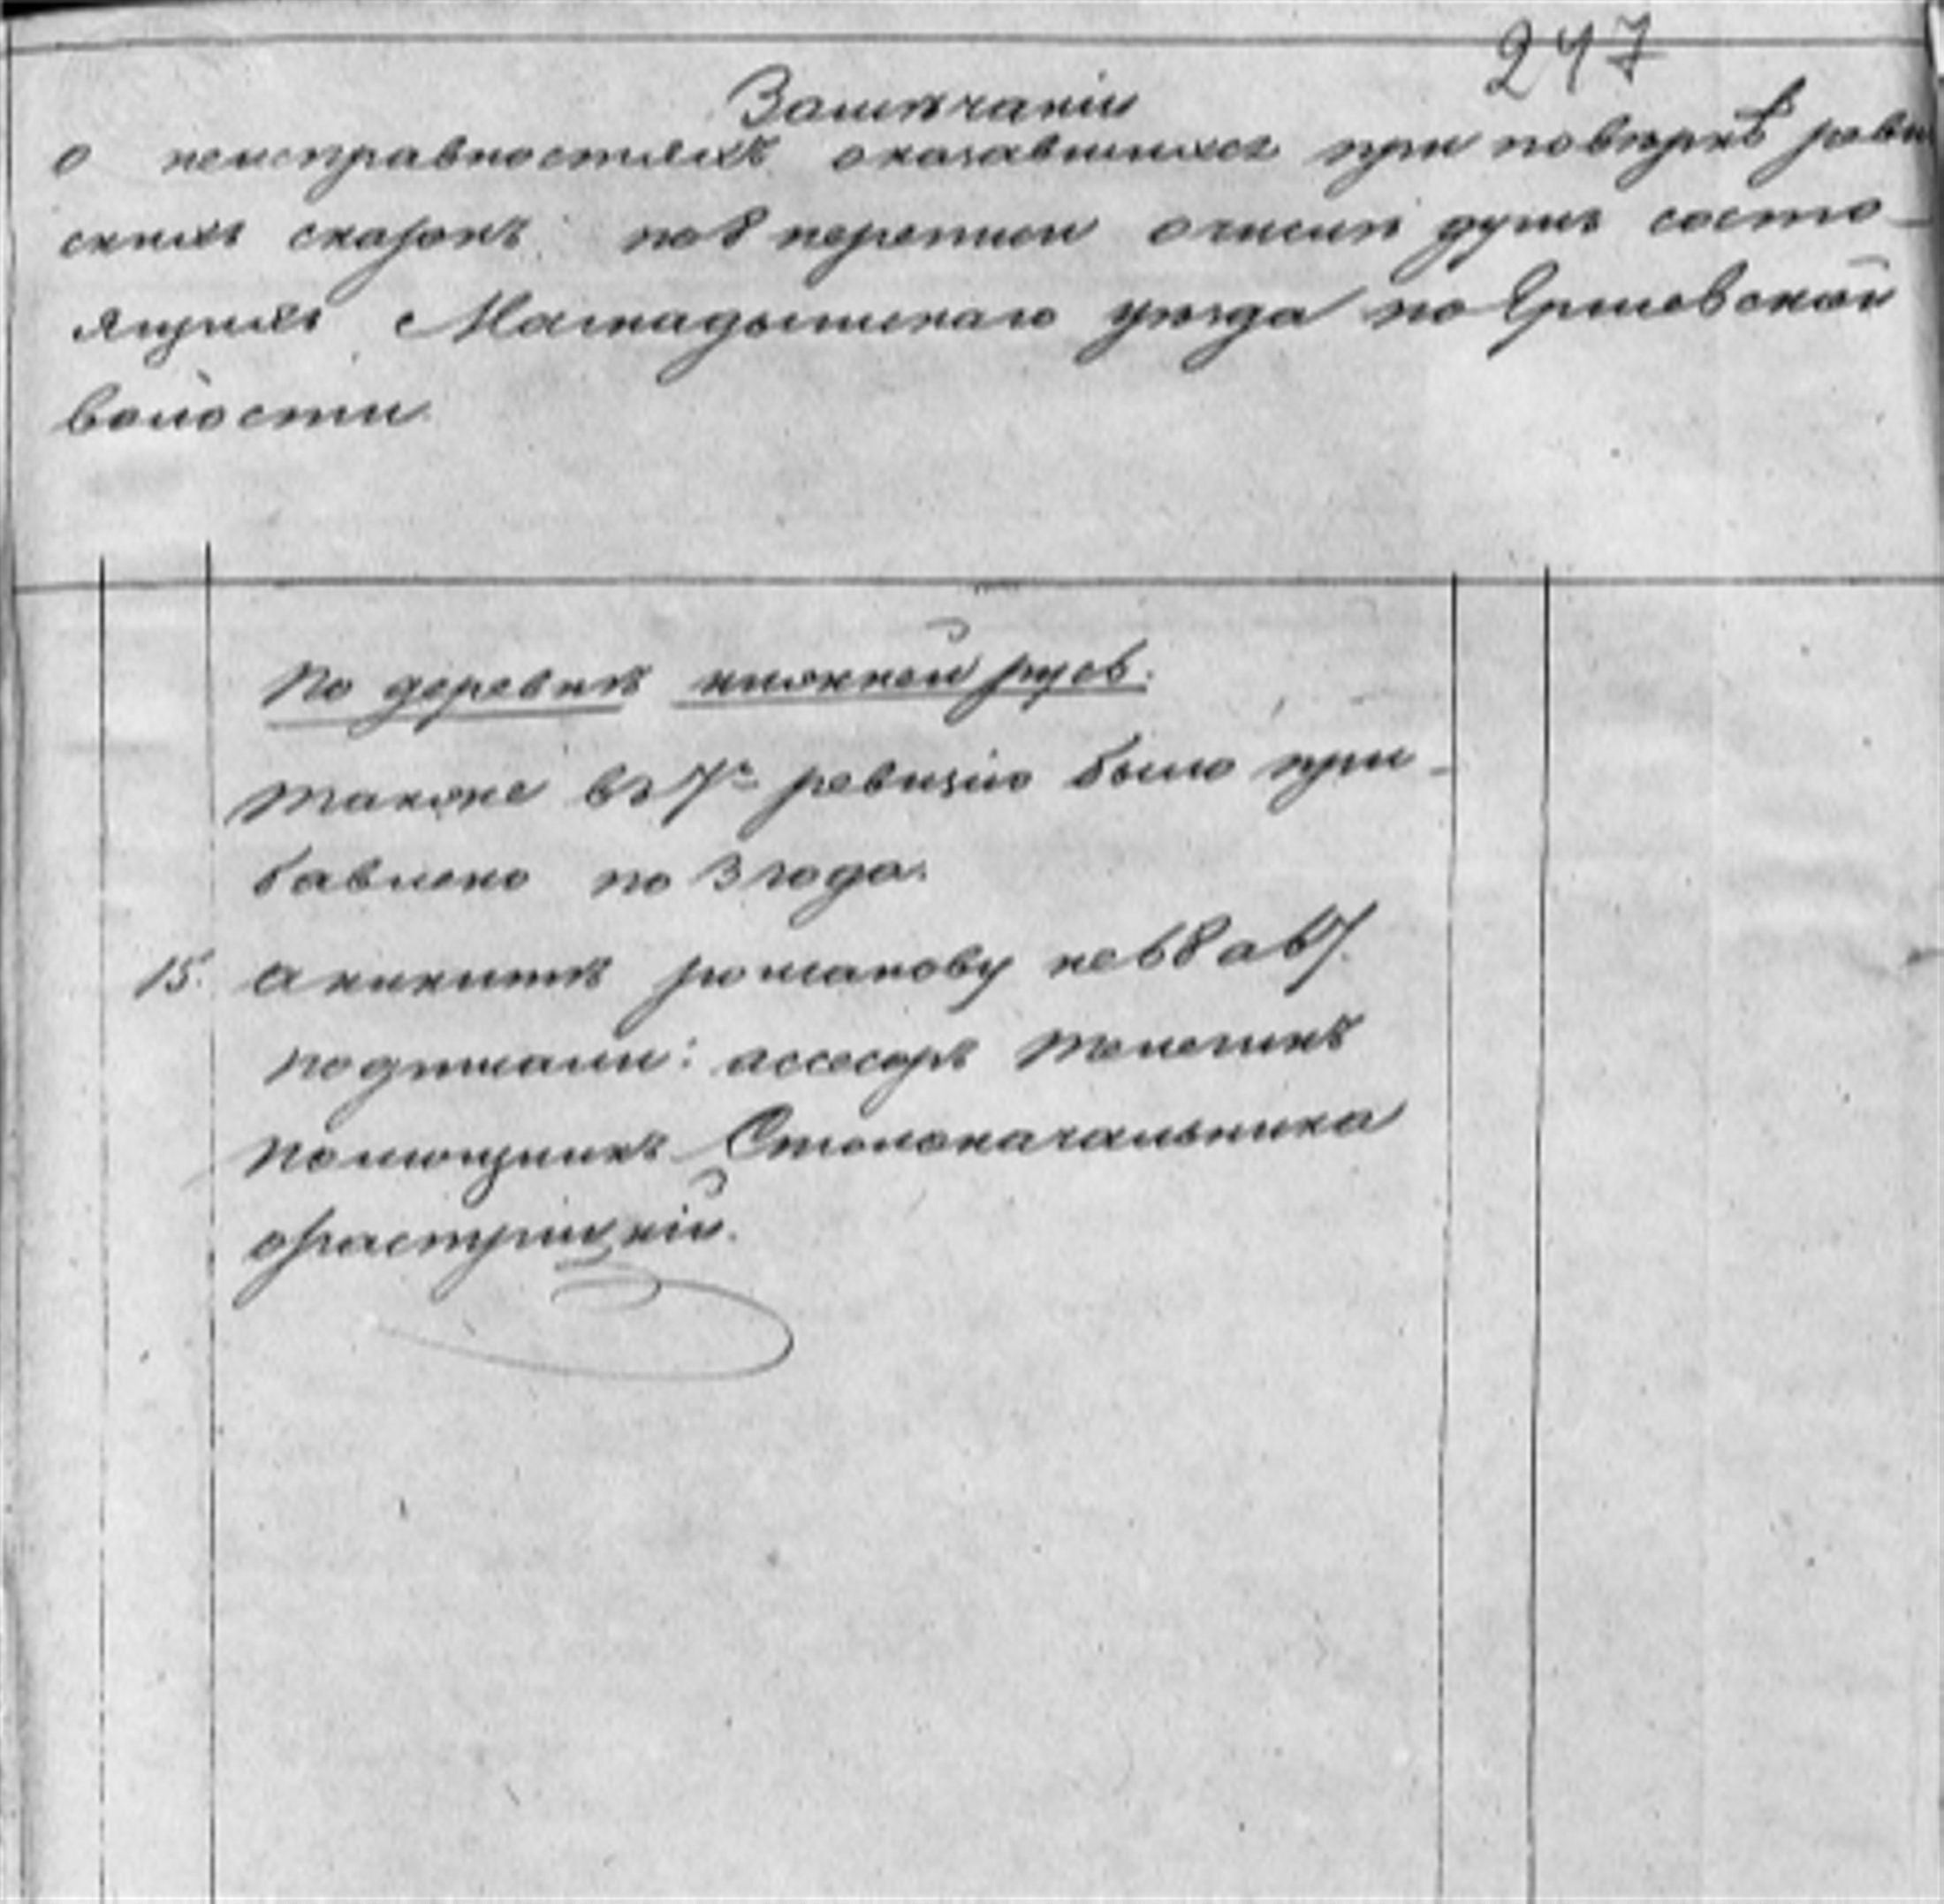 247
Замѣчаніи
о неисправностяхъ оказавшихся при повѣркѣ реви
скихъ сказокъ по 8 переписи о числѣ душъ состо-
ящихъ Мамадышскаго уѣзда по Ершовской
волости.
По деревнѣ княжей
также въ 7ю ревизію было при-
бавлено по 3 года.
15. Аникитѣ Романову не 68 а 67.
Подписали: ассесоръ Телегинъ
Помощникъ Столоначальника